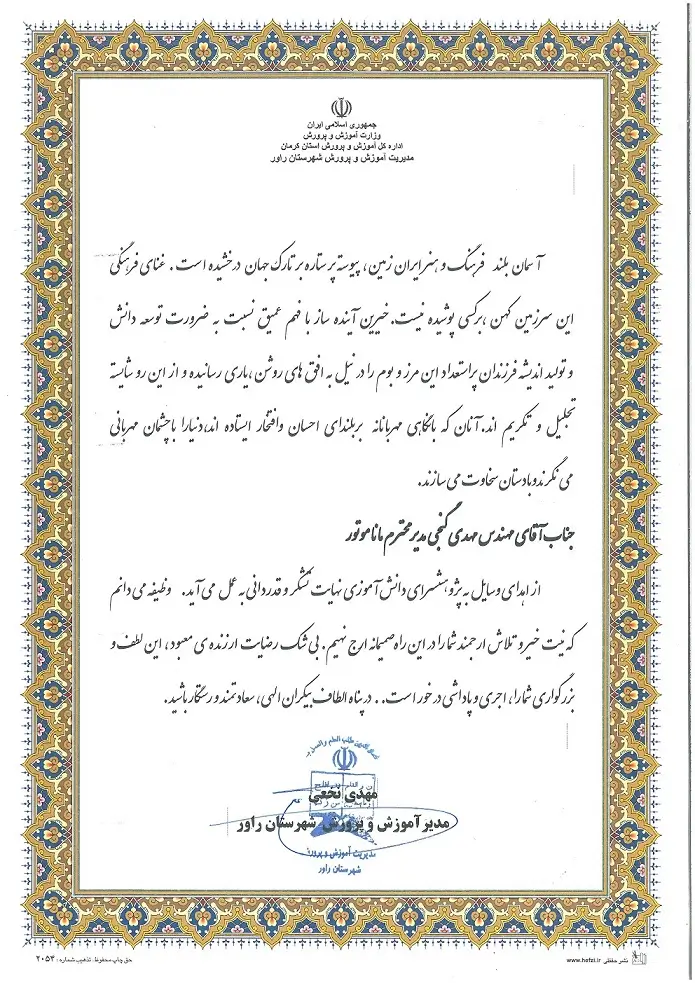 جمهوری اسلامی ایران
وزارت آموزش و پرورش
اداره کل آموزش و پرورش استان کرمان
مدیریت آموزش و پرورش شهرستان راور
آسمان بلند فرهنگ و هنر ایران زمین، پیوسته پر ستاره بر تارک جهان درخشیده است. غنای فرهنگی
این سرزمین کهن، برکسی پوشیده نیست. خیرین آینده ساز با فهم عمیق نسبت به ضرورت توسعه دانش
و تولید اندیشه فرزندان پراستعداد این مرز و بوم را در نیل به افق های روشن، یاری رسانیده و از این رو شایسته
تجلیل و تکریم اند. آنان که بانگاهی مهربانانه بربلندای احسان وافتخار ایستاده اند، دنیارا باچشمان مهربانی
می نگرند و بادستان سخاوت می سازند.
جناب آقای مهندس مهدی گنجی مدیر محترم مانا موتور
از اهدای وسایل به پژوهشسرای دانش آموزی نهایت تشکر و قدردانی به عمل می آید. وظیفه می دانم
که نیت خیر و تلاش ارجمند شما را در این راه صمیمانه ارج نهیم. بی شک رضایت ارزنده ی معبود، این لطف و
بزرگواری شما را، اجری و پاداشی در خور است.. در پناه الطاف بیکران الهی، سعادتمند و رستگار باشید.
مهدی نخعی
مدیر آموزش و پرورش شهرستان راور
مدیریت آموزش و پرورش
شهرستان راور
نشر حفظی www.hefzi.ir
حق چاپ محفوظ. تذهیب شماره: ۲۰۵۴